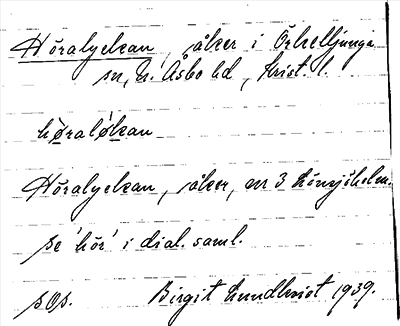 Höralyckan, åker i Örkelljunga
sn, N. Åsbo hd, Krist. l.
hø̀raløkan
Höralyckan, åker, nr 3 Hönsjöholm.
se 'hör' i dial. saml.
sOs. Birgit Lundkvist 1939.